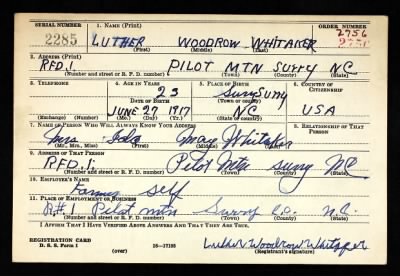 SERIAL NUMBER 1. NAME (Print) ORDER NUMBER
2756
2285 LUTHER WOODROW WHITAKER 2756
(First) (Middle) (Last)
2. ADDRESS (Print)
RFD.1. PILOT MTN Surry NC
(Number and street or R. F. D. number) (Town) (County) (State)
3. TELEPHONE 4. AGE IN YEARS 5. PLACE OF BIRTH 6. COUNTRY OF CITIZENSHIP
23 Surry
DATE OF BIRTH (Town or county)
JUNE 27 1917 NC USA
(Exchange) (Number) (Mo.) (Day) (Yr.) (State or country)
7. NAME OF PERSON WHO WILL ALWAYS KNOW YOUR ADDRESS 8. RELATIONSHIP OF THAT PERSON
Mrs. May Whitaker
(Mr., Mrs., Miss) (First) (Middle) (Last)
9. ADDRESS OF THAT PERSON
R.F.D.1. Pilot Mtn Surry N.C.
(Number and street or R. F. D. number) (Town) (County) (State)
10. EMPLOYER'S NAME
Farmer self
11. PLACE OF EMPLOYMENT OR BUSINESS
R#1 Pilot mtn Surry Co. N.C.
(Number and street or R. F. D. number) (Town) (County) (State)
I AFFIRM THAT I HAVE VERIFIED ABOVE ANSWERS AND THAT THEY ARE TRUE.
REGISTRATION CARD
D. S. S. Form 1 (over) 16—17105 Luther Woodrow Whitaker
(Registrant's signature)